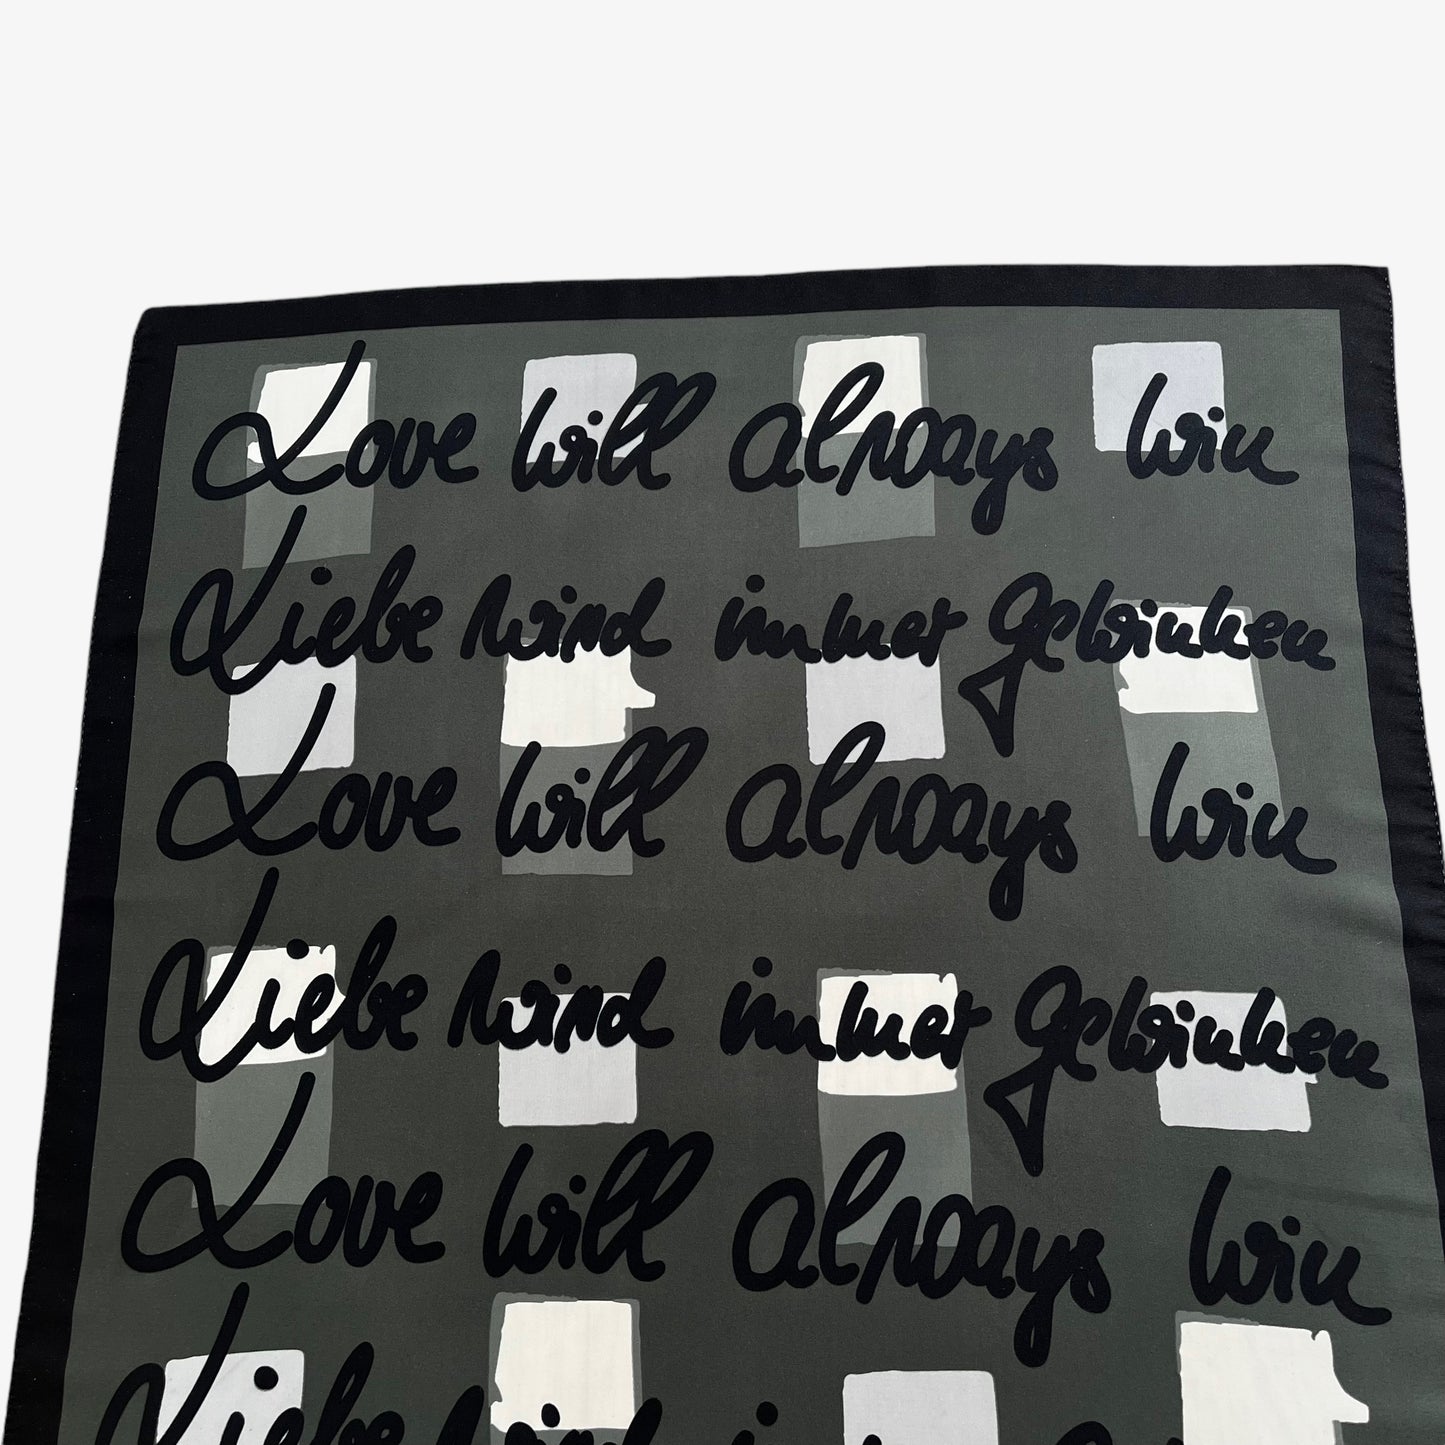 Love will always win
Liebe wird immer gewinnen
Love will always win
Liebe wird immer gewinnen
Love will always win
Liebe wird